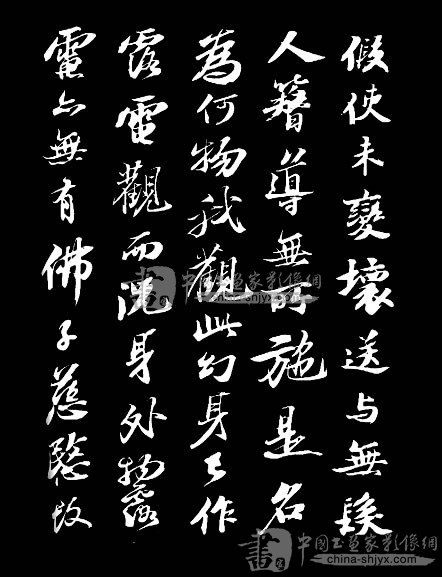 假使未變壞送與無髮
人簪導無所施是名
為何物我觀此幻身已作
露電觀而況身外物露
電亦無有佛子慈愍故
書 中国书画家影像網
www.china-shjyx.com
書 中国书画家影像網
www.china-shjyx.com